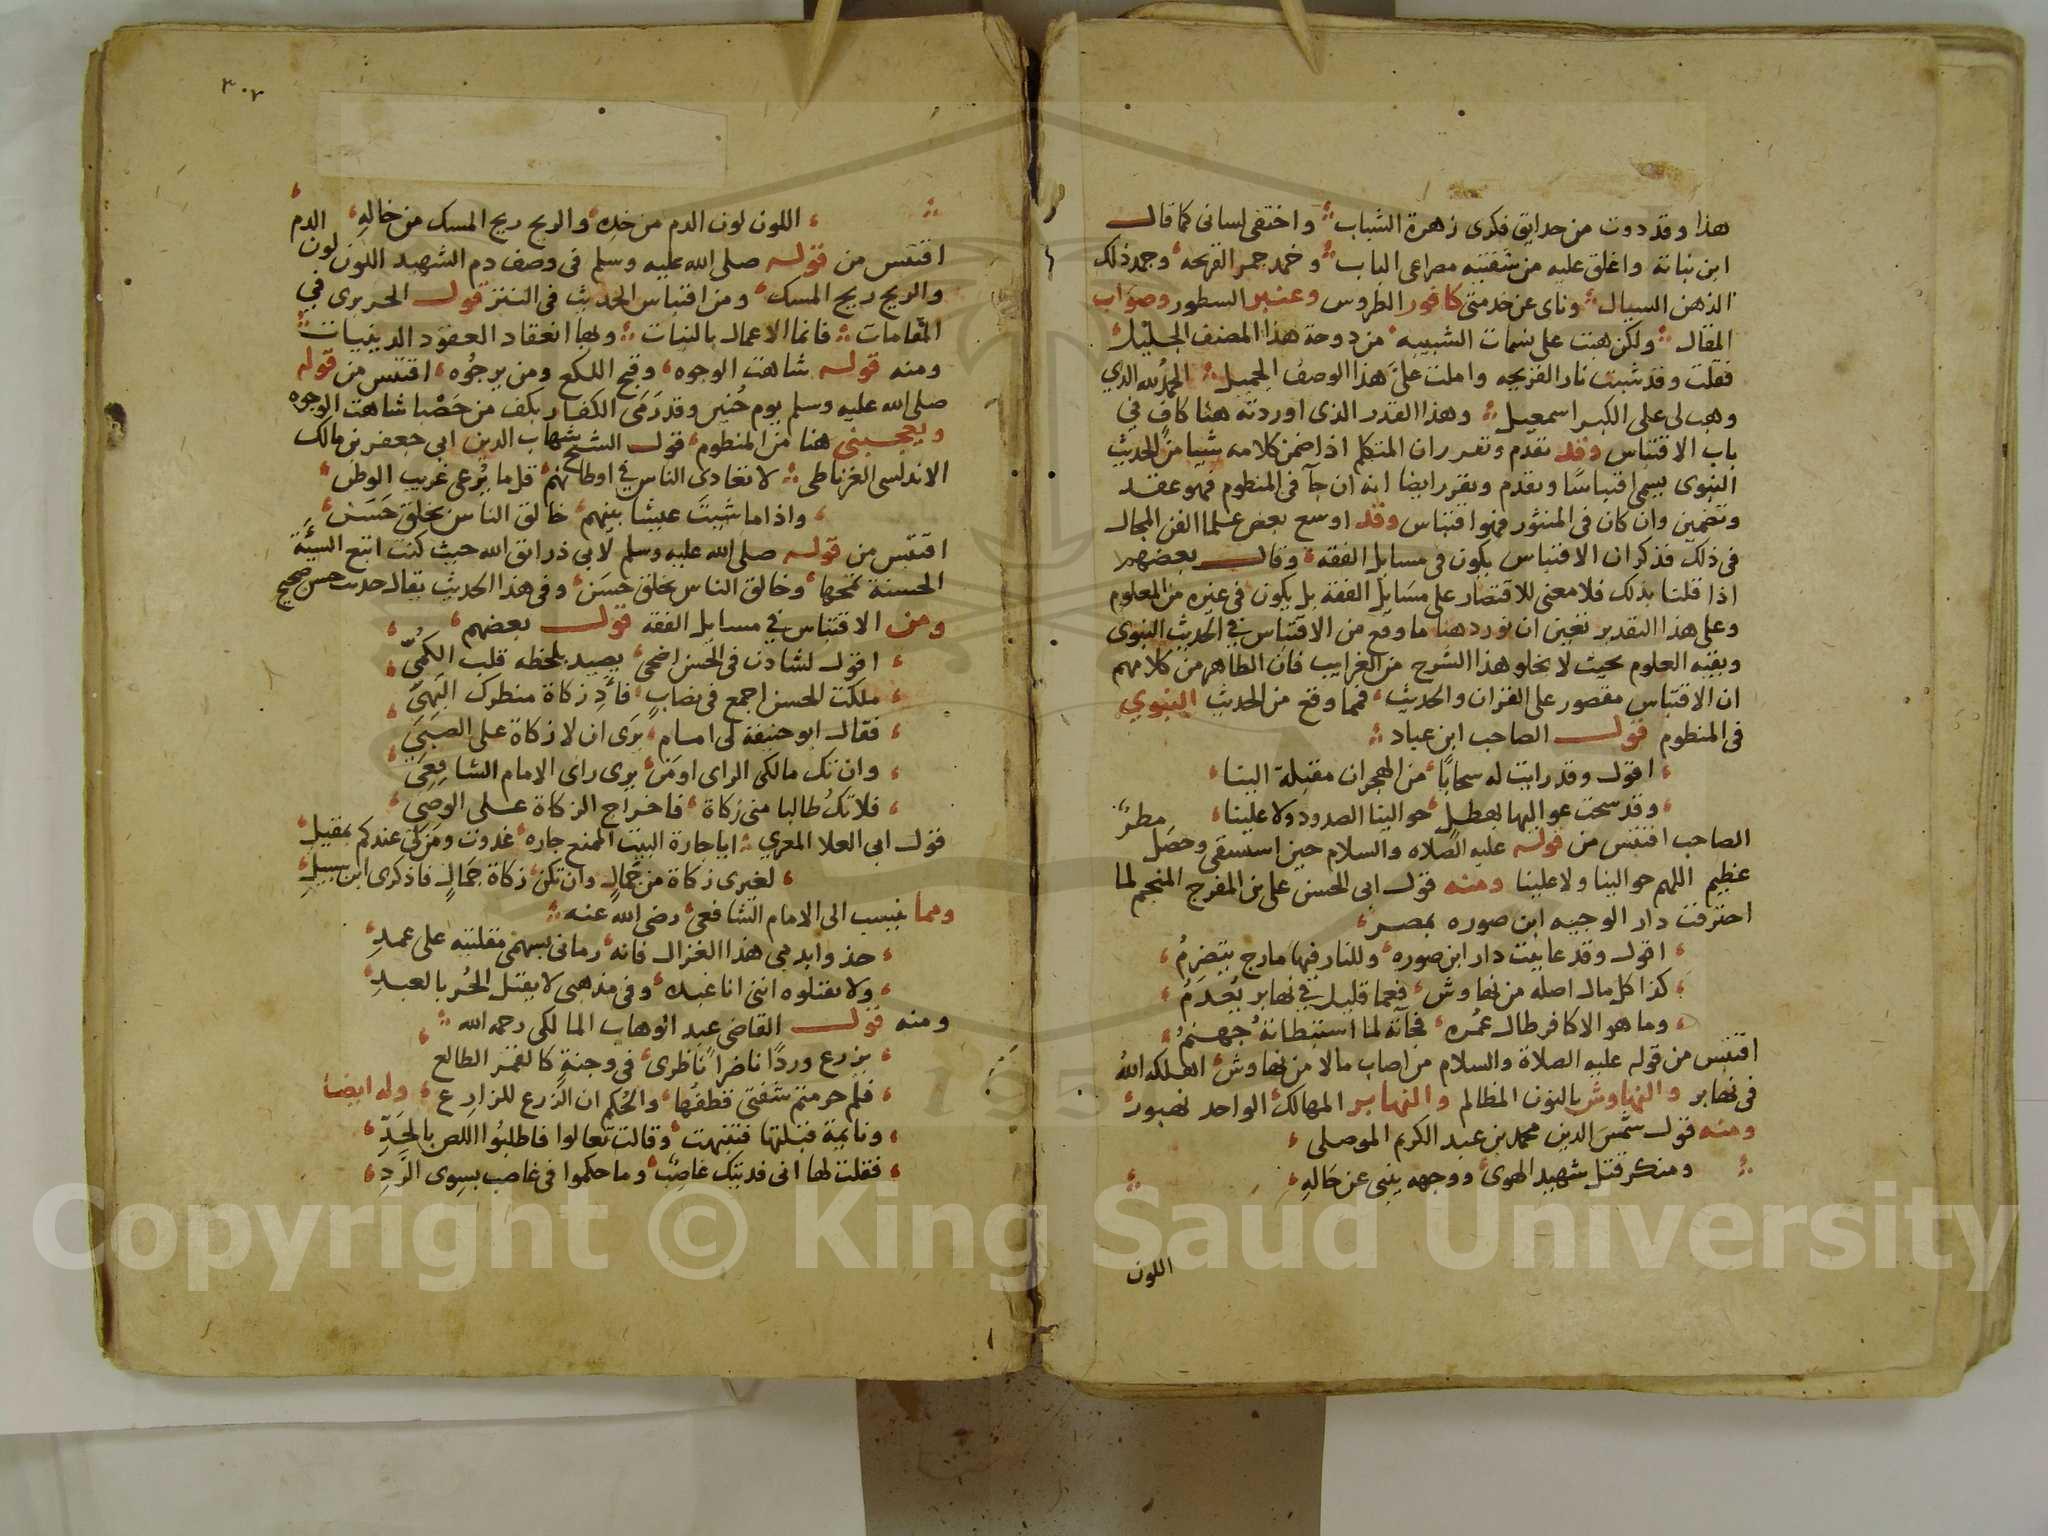 هذا وقد ذوت من حدايق فكرى زهرة الشباب واختفى لسانى كما قال
ابن نباتة واغلق عليه من شفتيه مصراعى الباب وخمد جمر القريحه وجمد ذلك
الذهن السيال وناى عن خدمتى كافور الطروس وعنبر السطور وصواب
المقال ولكن هبت على نسمات الشبيبه من دوحة هذا المصنف الجليل
فقلت وقد شبت نار القريحه واملت على هذا الوصف الجميل الحمد لله الذي
وهب لى على الكبر اسمعيل وهذا القدر الذى اوردته هنا كاف في
باب الاقتباس وقد تقدم وتقرر ان المتكلم اذا ضمن كلامه شيا من الحديث
النبوى يسمى اقتباسا وتقدم وتقرر ايضا انه ان جآ فى المنظوم فهو عقد
وتضمين وان كان فى المنثور فهو اقتباس وقد اوسع بعض علما الفن المجال
فى ذلك فذكر ان الاقتباس يكون فى مسايل الفقه وقال بعضهم
اذا قلنا بذلك فلا معنى للاقتصار على مسايل الفقه بل يكون فى غيره من العلوم
وعلى هذا التقدير تعين ان نورد هنا ما وقع من الاقتباس في الحديث النبوى
وبقية العلوم بحيث لا يخلو هذا الشرح من الغرايب فان الظاهر من كلامهم
ان الاقتباس مقصور على القران والحديث فمما وقع من الحديث النبوي
فى المنظوم قول الصاحب ابن عباد
اقول وقد رايت له سحابا من الهجران مقبلة الينا
وقد سحت عواليها بهطل حوالينا الصدود ولا علينا
الصاحب اقتبس من قوله عليه الصلاه والسلام حين استسقى وحصل مطر
عظيم اللهم حوالينا ولا علينا ومنه قول ابى الحسن على بن المفرج المنجم لما
احترقت دار الوجيه ابن صوره بمصر
اقول وقد عاينت دار ابن صوره وللنار فيها مارج يتضرم
كذا كل مال اصله من نهاوش فعما قليل في نهابر يعدم
وما هو الا كافر طال عمره فجآته لما استبطاته جهنم
اقتبس من قوله عليه الصلاة والسلام من اصاب مالا من نهاوش اهلكه الله
فى نهابر والنهاوش بالنون المظالم والنهابر المهالك الواحد نهبور
ومنه قول شمس الدين محمد بن عبد الكريم الموصلى
ومنكر قتل شهيد الهوى ووجهه ينبى عن حاله
اللون
٣٠٢
اللون لون الدم من خده والريح ريح المسك من خاله
اقتبس من قوله صلى الله عليه وسلم فى وصف دم الشهيد اللون لون الدم
والريح ريح المسك ومن اقتباس الحديث فى النثر قول الحريرى في
المقامات فانما الاعمال بالنيات وبها انعقاد العقود الدينيات
ومنه قوله شاهت الوجوه وقبح اللكع ومن يرجوه اقتبس من قوله
صلى الله عليه وسلم يوم حنين وقد رمى الكفار بكف من حصبا شاهت الوجوه
ويعجبنى هنا من المنظوم قول الشيخ شهاب الدين ابى جعفر بن مالك
الاندلسى الغرناطى لا تعادى الناس في اوطانهم قل ما يرعى غريب الوطن
واذا ما شيت عيشا بينهم خالق الناس بخلق حسن
اقتبس من قوله صلى الله عليه وسلم لابى ذر اتق الله حيث كنت اتبع السيئة
الحسنة تمحها وخالق الناس بخلق حسن وفى هذا الحديث يقال حديث حسن صحيح
ومن الاقتباس في مسايل الفقه قول بعضهم
اقول لشادن فى الحسن اضحى يصيد بلحظه قلب الكمى
ملكت الحسن اجمع فى نصاب فاد زكاة منظرك البهى
فقال ابو حنيفة لى امام يرى ان لا زكاة على الصبى
وان تك مالكى الراى او من يرى راى الامام الشافعى
فلا تك طالبا منى زكاة فاخراج الزكاة على الوصى
قول ابى العلا المعري ايا جارة البيت الممنع جاره غدوت ومن لى عندكم بمقيل
لغيرى زكاة من جمال وان تكن زكاة جمال فاذكرى ابن سبيل
ومما ينسب الى الامام الشافعى رضى الله عنه
خذوا بدمى هذا الغزال فانه رمانى بسهمى مقلتيه على عمد
ولا تقتلوه اننى انا عبده وفى مذهبى لا يقتل الحر بالعبد
ومنه قول القاضى عبد الوهاب المالكى رحمه الله
يزرع وردا ناضرا ناظرى فى وجنة كالقمر الطالع
فلم حرمتم شفتى قطفها والحكم ان الزرع للزارع وله ايضا
ونايمة قبلتها فتنبهت وقالت تعالوا فاطلبوا اللص بالحد
فقلت لها انى فديتك غاصب وما حكموا فى غاصب بسوى الرد
Copyright © King Saud University